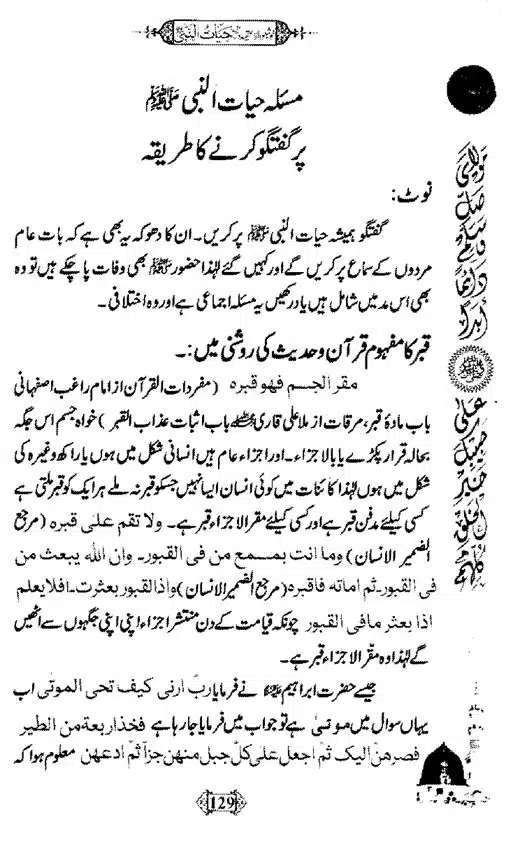 حیات النبی
مسئلہ حیات النبی ﷺ
پر گفتگو کرنے کا طریقہ
نوٹ:
گفتگو ہمیشہ حیات النبی ﷺ پر کریں۔ ان کا دھوکہ یہ بھی ہے کہ بات عام
مردوں کے سماع پر کریں گے اور کہیں گے لہٰذا حضور ﷺ بھی وفات پا چکے ہیں تو وہ
بھی اس مد میں شامل ہیں یاد رکھیں یہ مسئلہ اجماعی ہے اور وہ اختلافی۔
قبر کا مفہوم قرآن و حدیث کی روشنی میں:۔
مقر الجسم فھو قبرہ (مفردات القرآن از امام راغب اصفہانی
باب مادۂ قبر، مرقات از ملا علی قاری باب اثبات عذاب القبر) خواہ جسم اس جگہ
بحالہ قرار پکڑے یا بالاجزاء۔ اور اجزاء عام ہیں انسانی شکل میں ہوں یا راکھ وغیرہ کی
شکل میں ہوں لہٰذا کائنات میں کوئی انسان ایسا نہیں جسکو قبر نہ ملے ہر ایک کو قبر ملتی ہے
کسی کیلئے مدفن قبر ہے اور کسی کیلئے مقر الاجزاء قبر ہے۔ ولا تقم علی قبرہ (مرجع
الضمیر الانسان) وما انت بمسمع من فی القبور۔ وان اللہ یبعث من
فی القبور۔ ثم اماتہ فاقبرہ (مرجع الضمیر الانسان) واذا القبور بعثرت۔ افلا یعلم
اذا بعثر مافی القبور چونکہ قیامت کے دن منتشر اجزاء اپنی اپنی جگہوں سے اٹھیں
گے لہٰذا وہ مقر الاجزاء قبر ہے۔
جیسے حضرت ابراہیم نے فرمایا ربّ ارنی کیف تحی الموتٰی اب
یہاں سوال میں موتیٰ ہے تو جواب میں فرمایا جارہا ہے فخذ اربعۃ من الطیر
فصرھنّ الیک ثمّ اجعل علی کلّ جبل منھن جزأ ثمّ ادعھن معلوم ہوا کہ
129